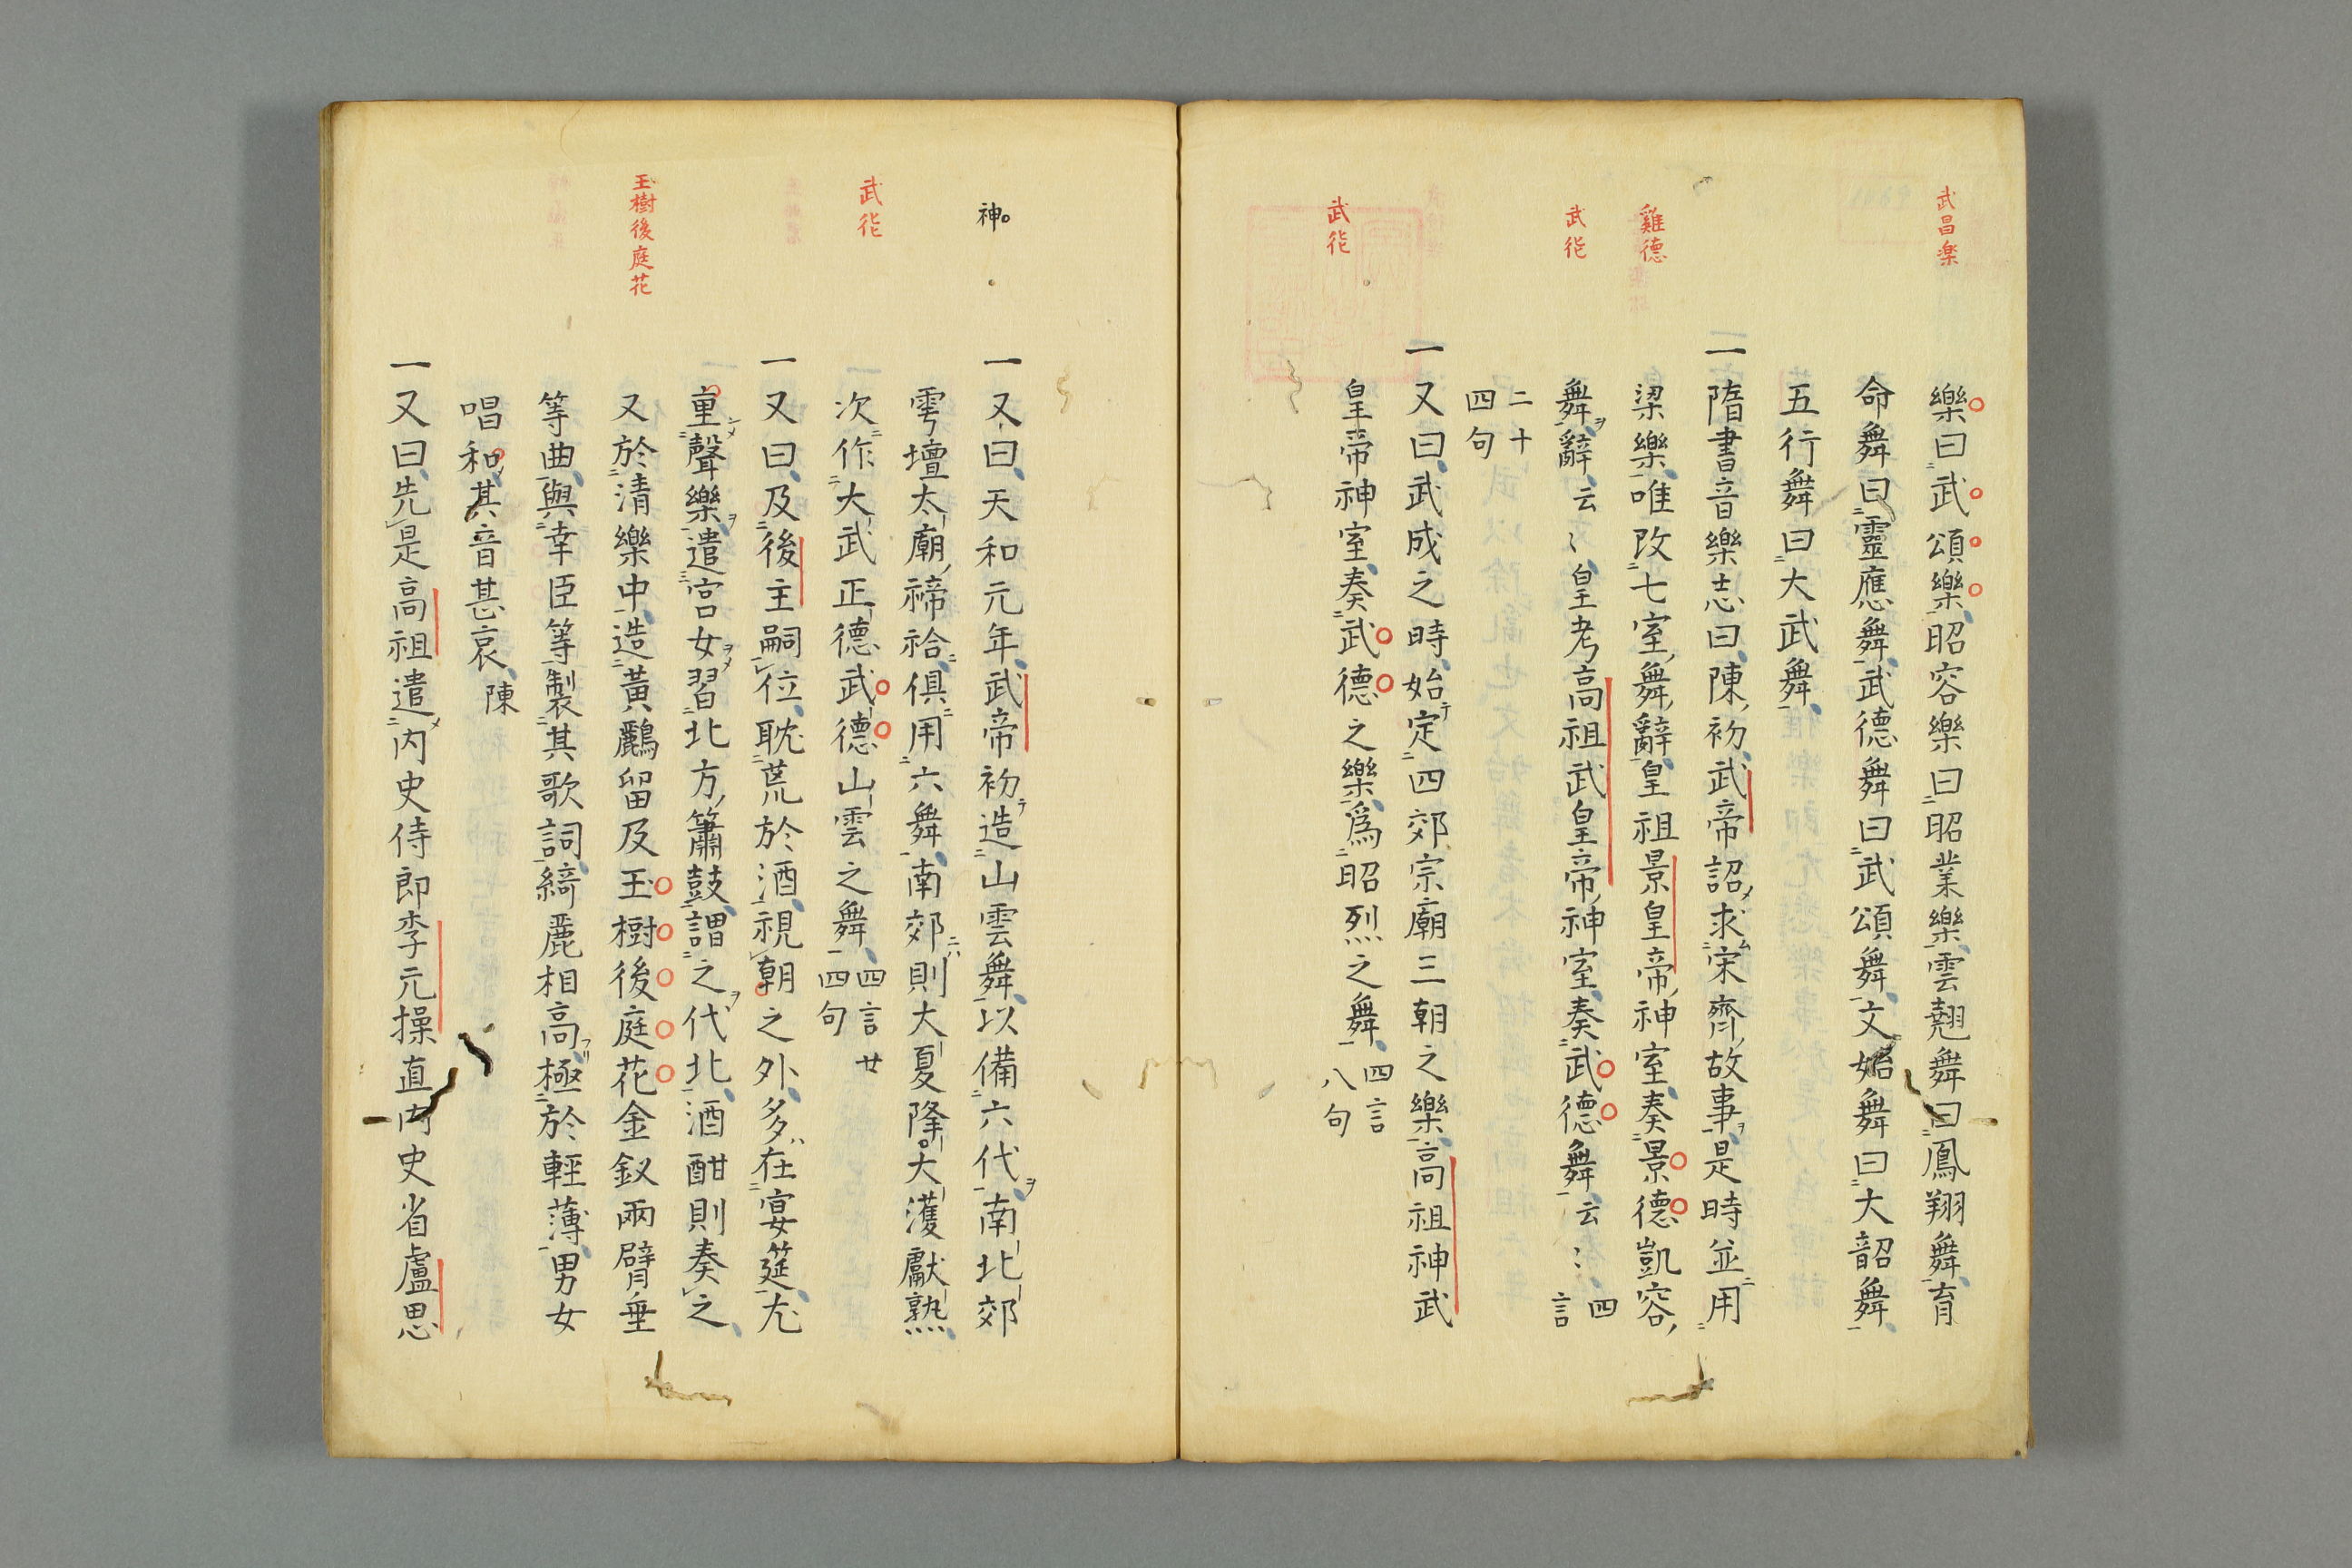 武昌楽
樂曰武頌樂昭容樂曰昭業樂雲翹舞曰鳳翔舞育
命舞曰靈應舞武德舞曰武頌舞文始舞曰大韶舞
五行舞曰大武舞
一隋書音樂志曰陳初武帝詔求宋齊故事是時並用
雞德
梁樂唯改七室舞辭皇祖景皇帝神室奏景德凱容
武
舞辭云〻皇考高祖武皇帝神室奏武德舞云〻四
言
二十
四句
一又曰武成之時始定四郊宗廟三朝之樂高祖神武
武
皇帝神室奏武德之樂爲昭烈之舞四言
八句
神
一又曰天和元年武帝初造山雲舞以備六代南北郊
雩壇太廟禘祫俱用六舞南郊則大夏降大濩獻熟
武
次作大武正德武德山雲之舞四言廿
四句
一又曰及後主嗣位耽荒於酒視朝之外多在宴筵尤
重聲樂遣宮女習北方簫鼓謂之代北酒酣則奏之
玉樹後庭花
又於清樂中造黃鸝留及玉樹後庭花金釵兩臂垂
等曲與幸臣等製其歌詞綺麗相高極於輕薄男女
唱和其音甚哀陳
一又曰先是高祖遣内史侍郎李元操直内史省盧思